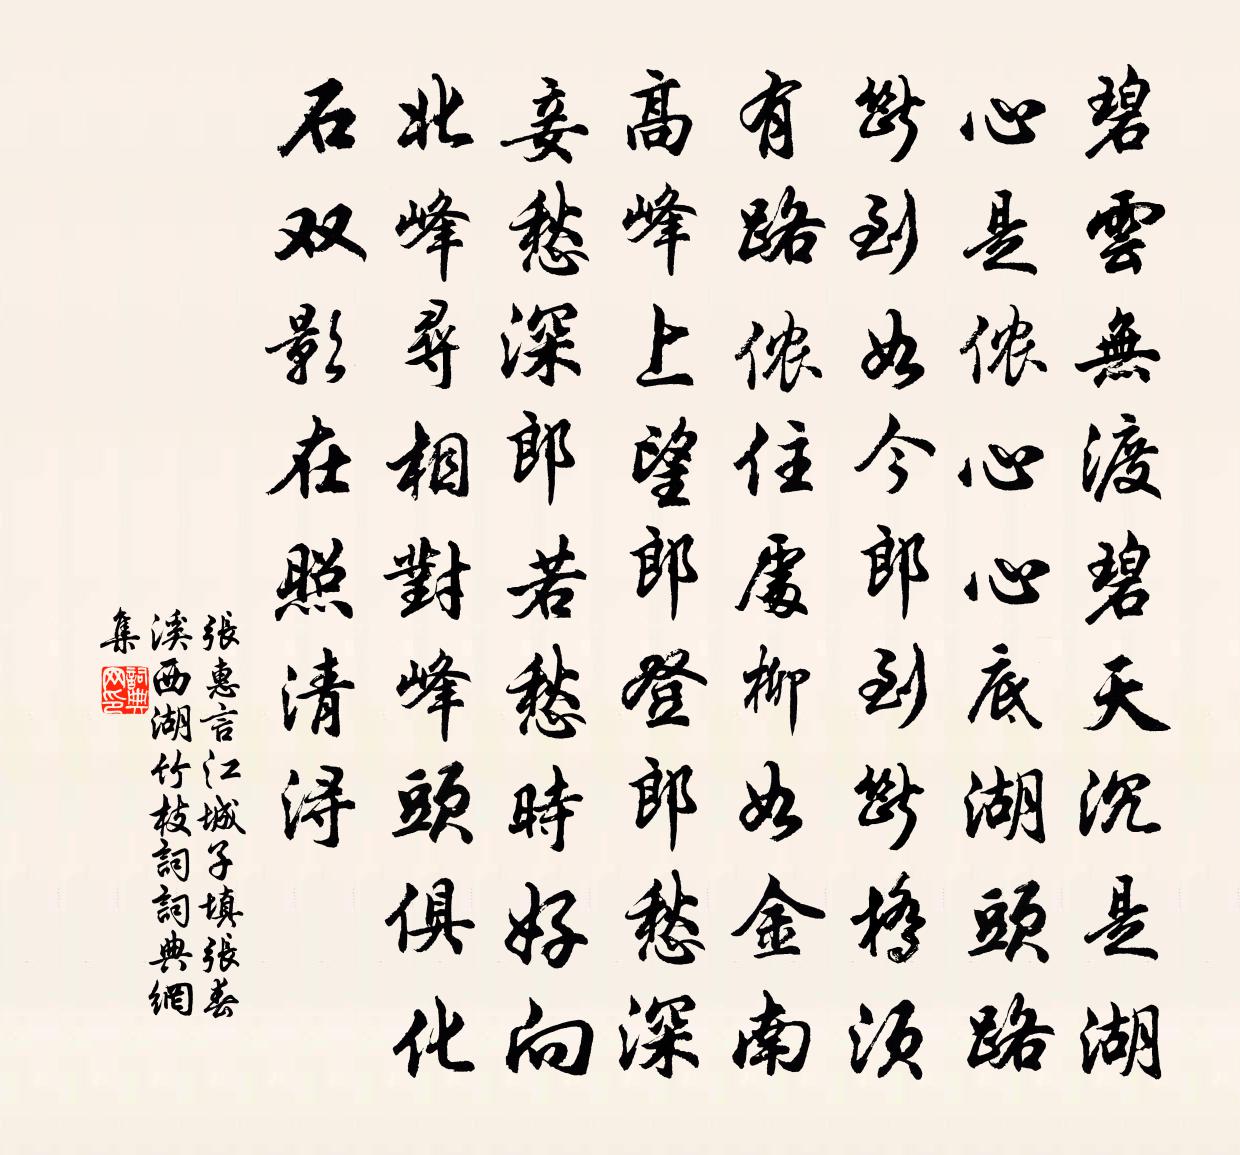 碧雲無渡碧天沉是湖
心是侬心心底湖頭路
斷到如今郎到斷橋須
有路侬住處柳如金南
高峰上望郎登郎愁深
妾愁深郎若愁時好向
北峰尋相對峰頭俱化
石双影在照清潯
張惠言江城子填張春
溪西湖竹枝詞詞典網
集
詞典
网印